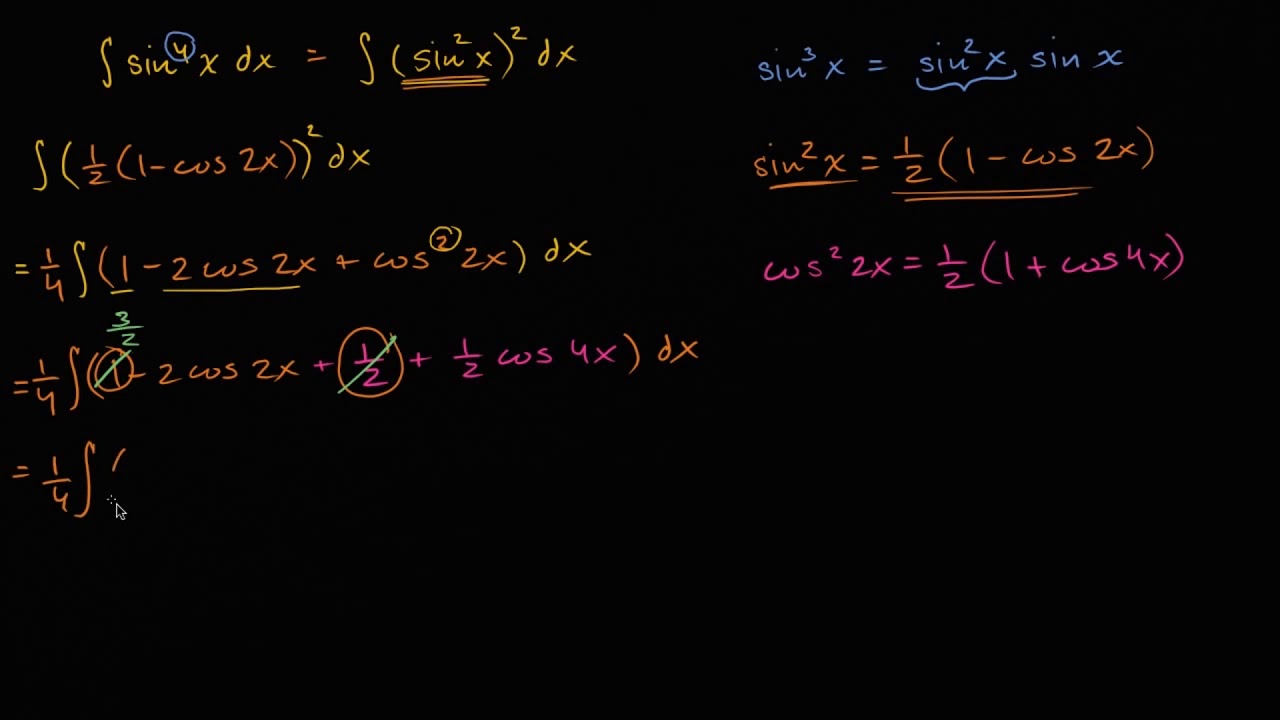 ∫ sin⁴ x dx = ∫ (sin² x)² dx
sin³ x = sin² x sin x
∫ (1/2 (1 - cos 2x))² dx
sin² x = 1/2 (1 - cos 2x)
= 1/4 ∫ (1 - 2 cos 2x + cos² 2x) dx
cos² 2x = 1/2 (1 + cos 4x)
3/2
= 1/4 ∫ (1 - 2 cos 2x + 1/2 + 1/2 cos 4x) dx
= 1/4 ∫ (